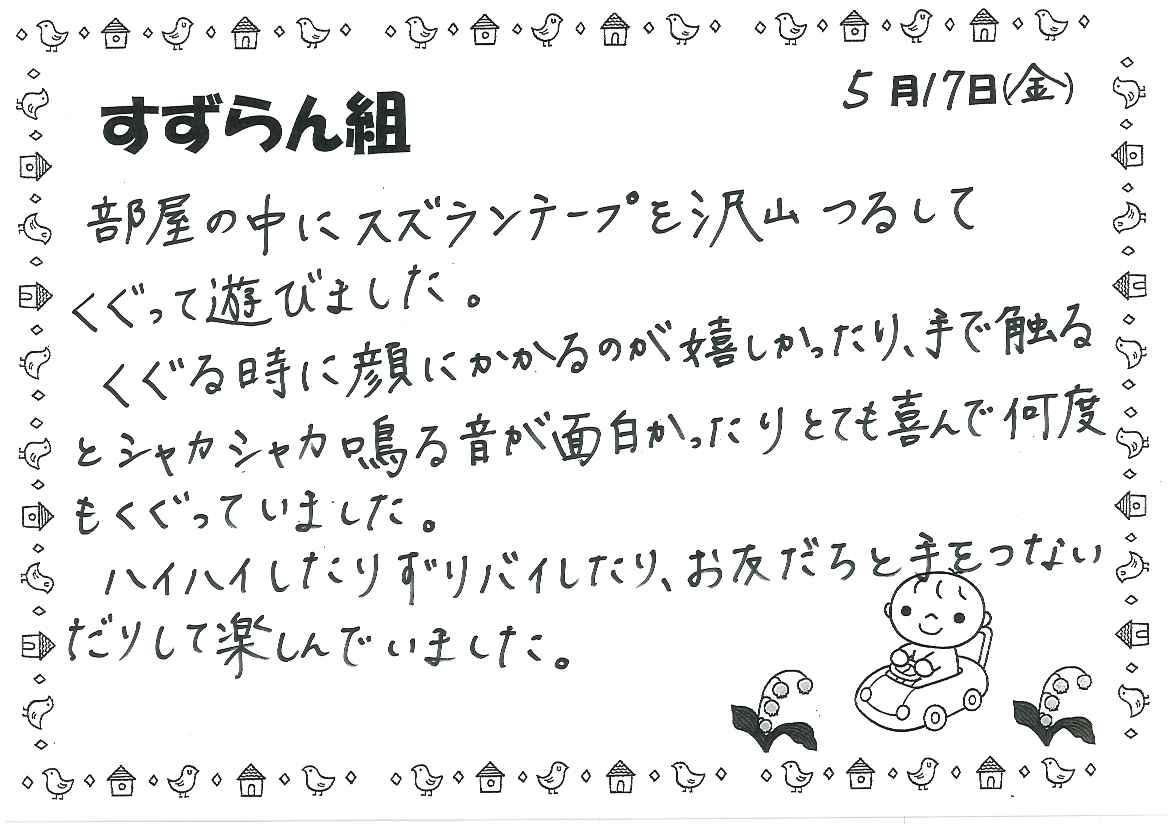 5月17日(金)
すずらん組
部屋の中にスズランテープを沢山つるして
くぐって遊びました。
くぐる時に顔にかかるのが嬉しかったり、手で触る
とシャカシャカ鳴る音が面白かったりとても喜んで何度
もくぐっていました。
ハイハイしたりずりバイしたり、お友だちと手をつない
だりして楽しんでいました。